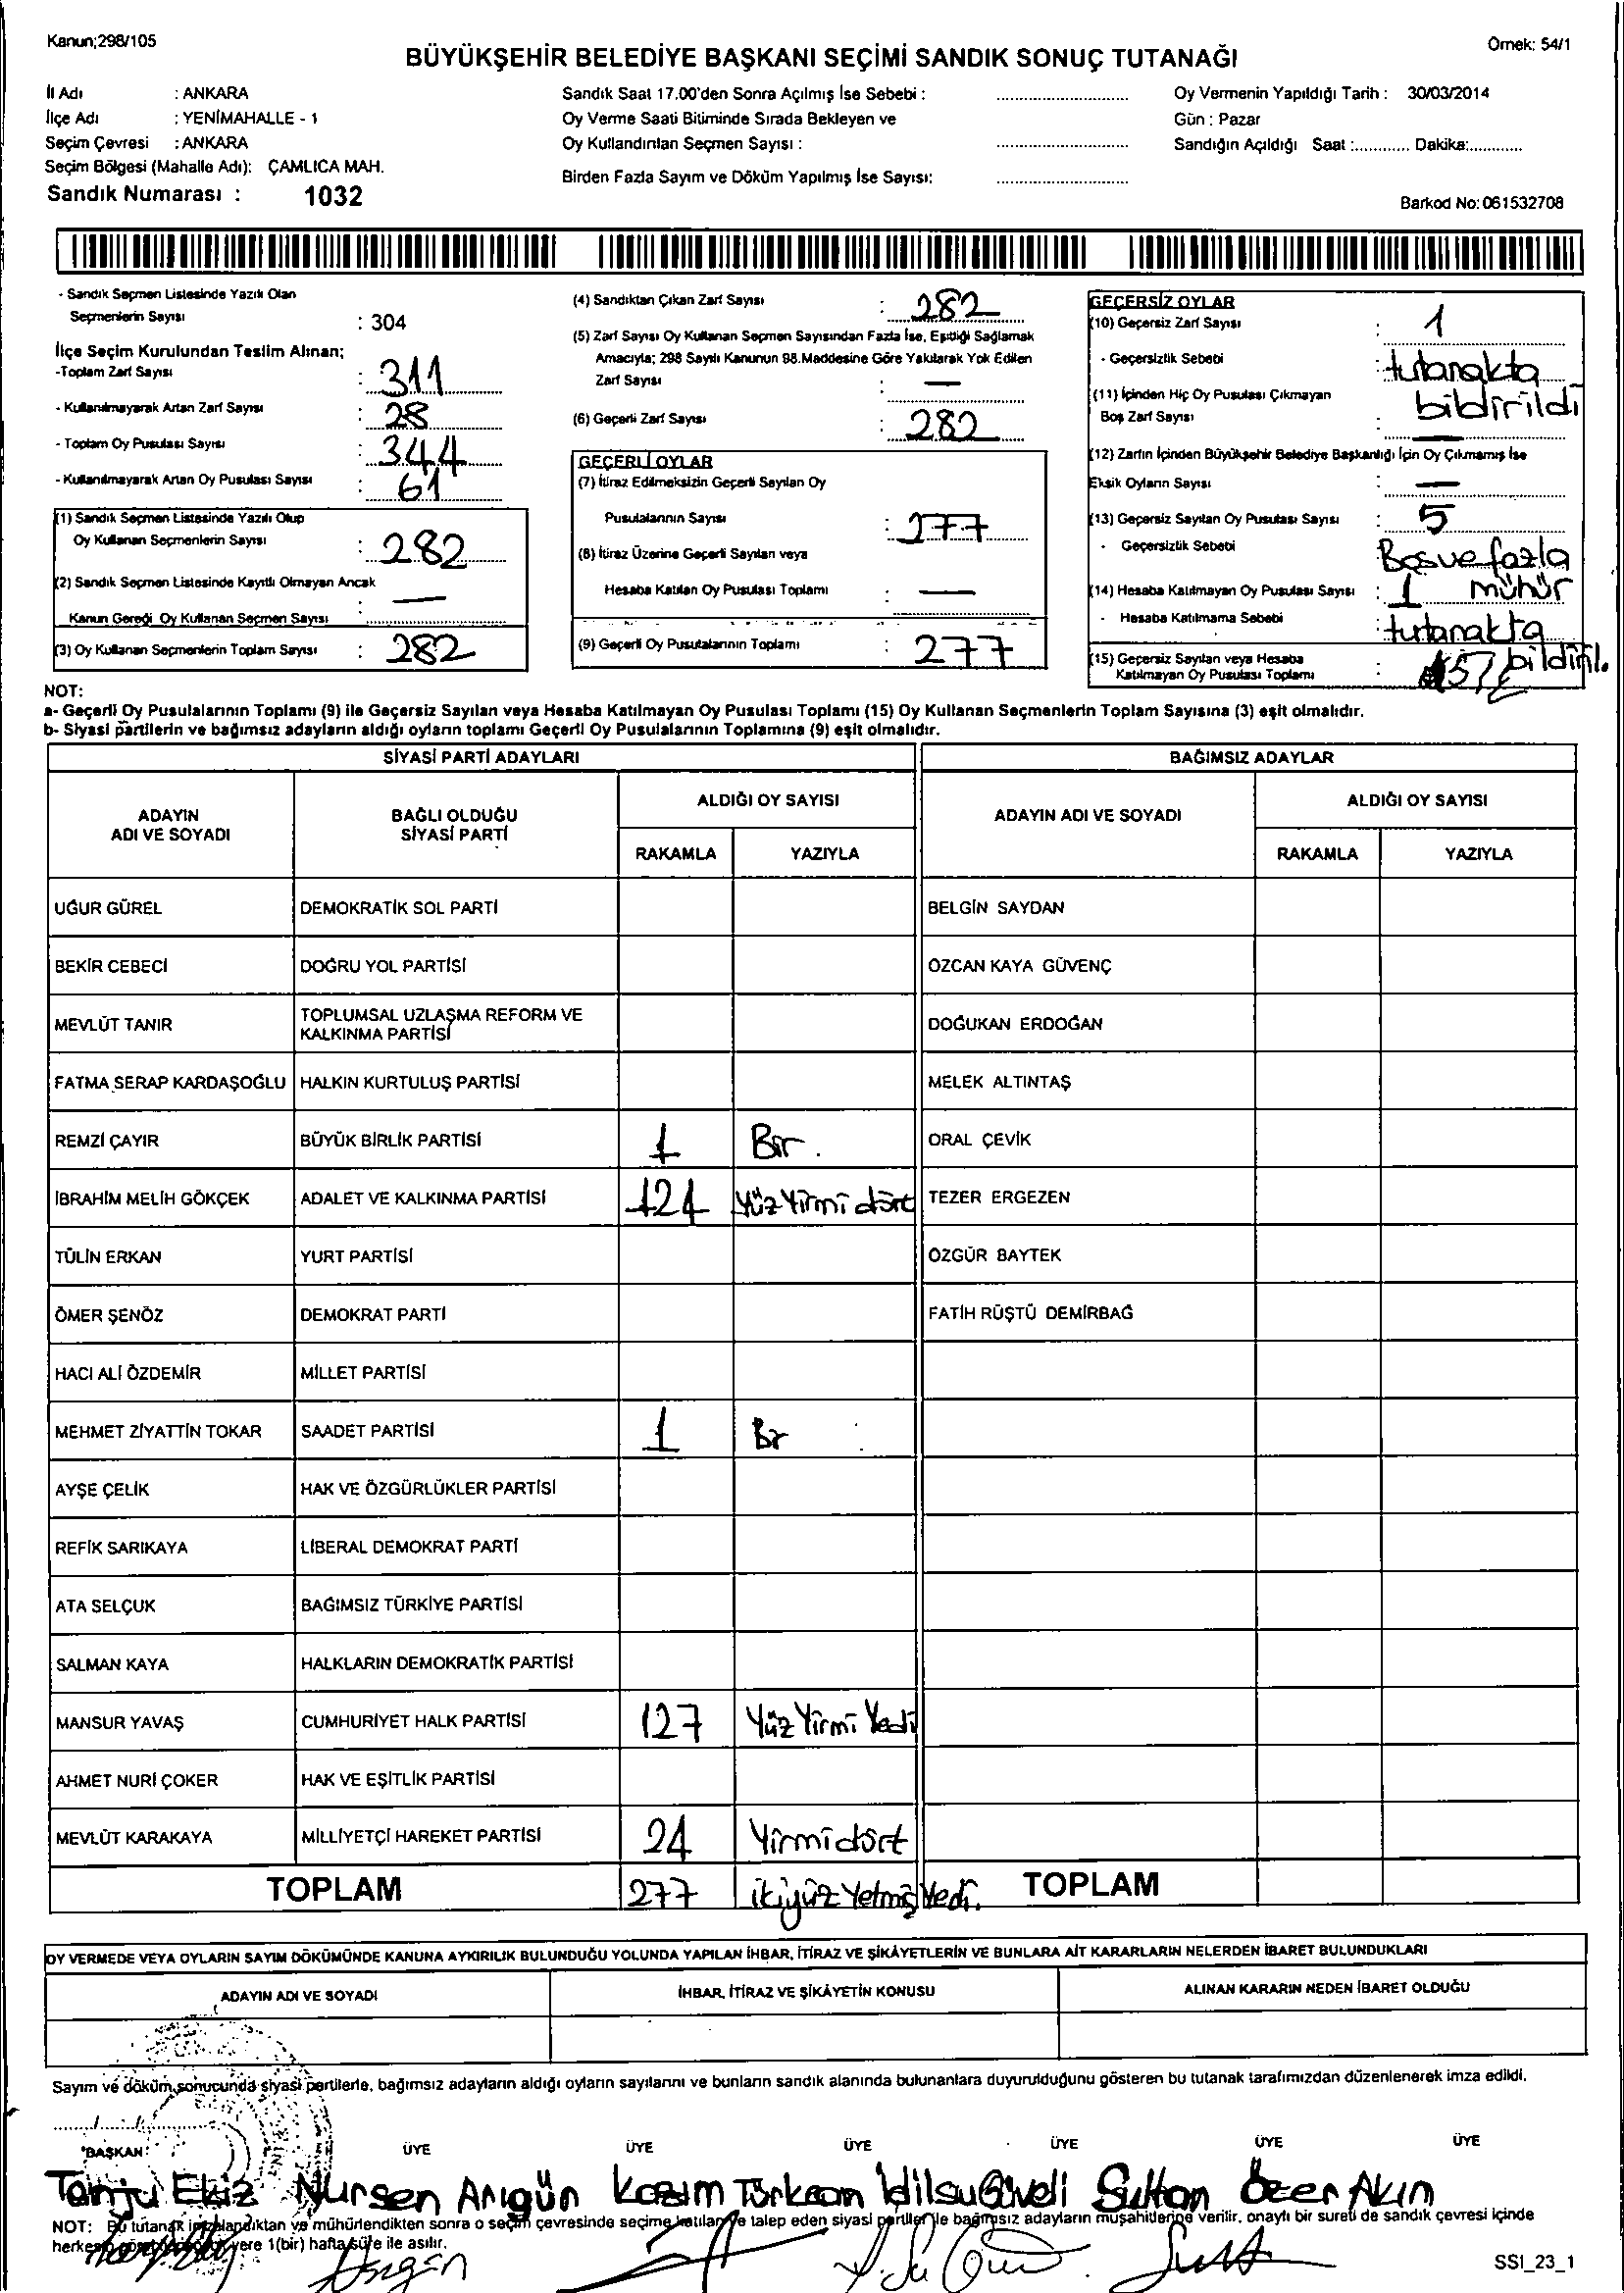 Kanun;298/105
Örnek: 54/1
BÜYÜKŞEHİR BELEDİYE BAŞKANI SEÇİMİ SANDIK SONUÇ TUTANAĞI
İl Adı : ANKARA
İlçe Adı : YENİMAHALLE - 1
Seçim Çevresi : ANKARA
Seçim Bölgesi (Mahalle Adı): ÇAMLICA MAH.
Sandık Numarası : 1032
Sandık Saat 17.00'den Sonra Açılmış İse Sebebi :
Oy Verme Saati Bitiminde Sırada Bekleyen ve
Oy Kullandırılan Seçmen Sayısı :
Birden Fazla Sayım ve Döküm Yapılmış İse Sayısı:
Oy Vermenin Yapıldığı Tarih : 30/03/2014
Gün : Pazar
Sandığın Açıldığı Saat :............ Dakika:............
Barkod No: 061532708
- Sandık Seçmen Listesinde Yazılı Olan
Seçmenlerin Sayısı : 304
İlçe Seçim Kurulundan Teslim Alınan;
-Toplam Zarf Sayısı : 311
- Kullanılmayarak Artan Zarf Sayısı : 28
- Toplam Oy Pusulası Sayısı : 344
- Kullanılmayarak Artan Oy Pusulası Sayısı : 61
(1) Sandık Seçmen Listesinde Yazılı Olup
Oy Kullanan Seçmenlerin Sayısı : 282
(2) Sandık Seçmen Listesinde Kayıtlı Olmayan Ancak
Kanun Gereği Oy Kullanan Seçmen Sayısı : —
(3) Oy Kullanan Seçmenlerin Toplam Sayısı : 282
(4) Sandıktan Çıkan Zarf Sayısı : 282
(5) Zarf Sayısı Oy Kullanan Seçmen Sayısından Fazla İse, Eşitliği Sağlamak
Amacıyla; 298 Sayılı Kanunun 98.Maddesine Göre Yakılarak Yok Edilen
Zarf Sayısı : —
(6) Geçerli Zarf Sayısı : 282
GEÇERLİ OYLAR
(7) İtiraz Edilmeksizin Geçerli Sayılan Oy
Pusulalarının Sayısı : 277
(8) İtiraz Üzerine Geçerli Sayılan veya
Hesaba Katılan Oy Pusulası Toplamı : —
(9) Geçerli Oy Pusulalarının Toplamı : 277
GEÇERSİZ OYLAR
(10) Geçersiz Zarf Sayısı : 1
- Geçersizlik Sebebi : tutanakta
bildirildi
(11) İçinden Hiç Oy Pusulası Çıkmayan
Boş Zarf Sayısı : —
(12) Zarfın İçinden Büyükşehir Belediye Başkanlığı İçin Oy Çıkmamış İse
Eksik Oyların Sayısı : —
(13) Geçersiz Sayılan Oy Pusulası Sayısı : 5
- Geçersizlik Sebebi Boş ve fazla
mühür
(14) Hesaba Katılmayan Oy Pusulası Sayısı : 1
- Hesaba Katılmama Sebebi : tutanakta
bildiril.
(15) Geçersiz Sayılan veya Hesaba
Katılmayan Oy Pusulası Toplamı : 5
NOT:
a- Geçerli Oy Pusulalarının Toplamı (9) ile Geçersiz Sayılan veya Hesaba Katılmayan Oy Pusulası Toplamı (15) Oy Kullanan Seçmenlerin Toplam Sayısına (3) eşit olmalıdır.
b- Siyasi partilerin ve bağımsız adayların aldığı oyların toplamı Geçerli Oy Pusulalarının Toplamına (9) eşit olmalıdır.
SİYASİ PARTİ ADAYLARI BAĞIMSIZ ADAYLAR
ADAYIN
ADI VE SOYADI
BAĞLI OLDUĞU
SİYASİ PARTİ
ALDIĞI OY SAYISI
RAKAMLA YAZIYLA
ADAYIN ADI VE SOYADI
ALDIĞI OY SAYISI
RAKAMLA YAZIYLA
UĞUR GÜREL DEMOKRATİK SOL PARTİ BELGİN SAYDAN
BEKİR CEBECİ DOĞRU YOL PARTİSİ ÖZCAN KAYA GÜVENÇ
MEVLÜT TANIR TOPLUMSAL UZLAŞMA REFORM VE
KALKINMA PARTİSİ DOĞUKAN ERDOĞAN
FATMA SERAP KARDAŞOĞLU HALKIN KURTULUŞ PARTİSİ MELEK ALTINTAŞ
REMZİ ÇAYIR BÜYÜK BİRLİK PARTİSİ 1 Bir. ORAL ÇEVİK
İBRAHİM MELİH GÖKÇEK ADALET VE KALKINMA PARTİSİ 124 Yüz Yirmi dört TEZER ERGEZEN
TÜLİN ERKAN YURT PARTİSİ ÖZGÜR BAYTEK
ÖMER ŞENÖZ DEMOKRAT PARTİ FATİH RÜŞTÜ DEMİRBAĞ
HACI ALİ ÖZDEMİR MİLLET PARTİSİ
MEHMET ZİYATTİN TOKAR SAADET PARTİSİ 1 Bir
AYŞE ÇELİK HAK VE ÖZGÜRLÜKLER PARTİSİ
REFİK SARIKAYA LİBERAL DEMOKRAT PARTİ
ATA SELÇUK BAĞIMSIZ TÜRKİYE PARTİSİ
SALMAN KAYA HALKLARIN DEMOKRATİK PARTİSİ
MANSUR YAVAŞ CUMHURİYET HALK PARTİSİ 127 Yüz Yirmi Yedi
AHMET NURİ ÇOKER HAK VE EŞİTLİK PARTİSİ
MEVLÜT KARAKAYA MİLLİYETÇİ HAREKET PARTİSİ 24 Yirmi dört
TOPLAM 277 ikiyüz Yetmiş Yedi. TOPLAM
OY VERMEDE VEYA OYLARIN SAYIM DÖKÜMÜNDE KANUNA AYKIRILIK BULUNDUĞU YOLUNDA YAPILAN İHBAR, İTİRAZ VE ŞİKÂYETLERİN VE BUNLARA AİT KARARLARIN NELERDEN İBARET BULUNDUKLARI
ADAYIN ADI VE SOYADI İHBAR, İTİRAZ VE ŞİKÂYETİN KONUSU ALINAN KARARIN NEDEN İBARET OLDUĞU
Sayım ve döküm sonucunda siyasi partilerle, bağımsız adayların aldığı oyların sayılarını ve bunların sandık alanında bulunanlara duyurulduğunu gösteren bu tutanak tarafımızdan düzenlenerek imza edildi.
BAŞKAN ÜYE ÜYE ÜYE ÜYE ÜYE ÜYE
Tanju Ekiz Nursen Arıgün Kazım Türkcan İdilsu Güveli Sultan Özer Akın
NOT: Bu tutanak imzalandıktan ve mühürlendikten sonra o seçim çevresinde seçime katılan ve talep eden siyasi partiler ile bağımsız adayların müşahitlerine verilir, onaylı bir sureti de sandık çevresi içinde
herkesin yere 1(bir) hafta süre ile asılır.
SSI_23_1